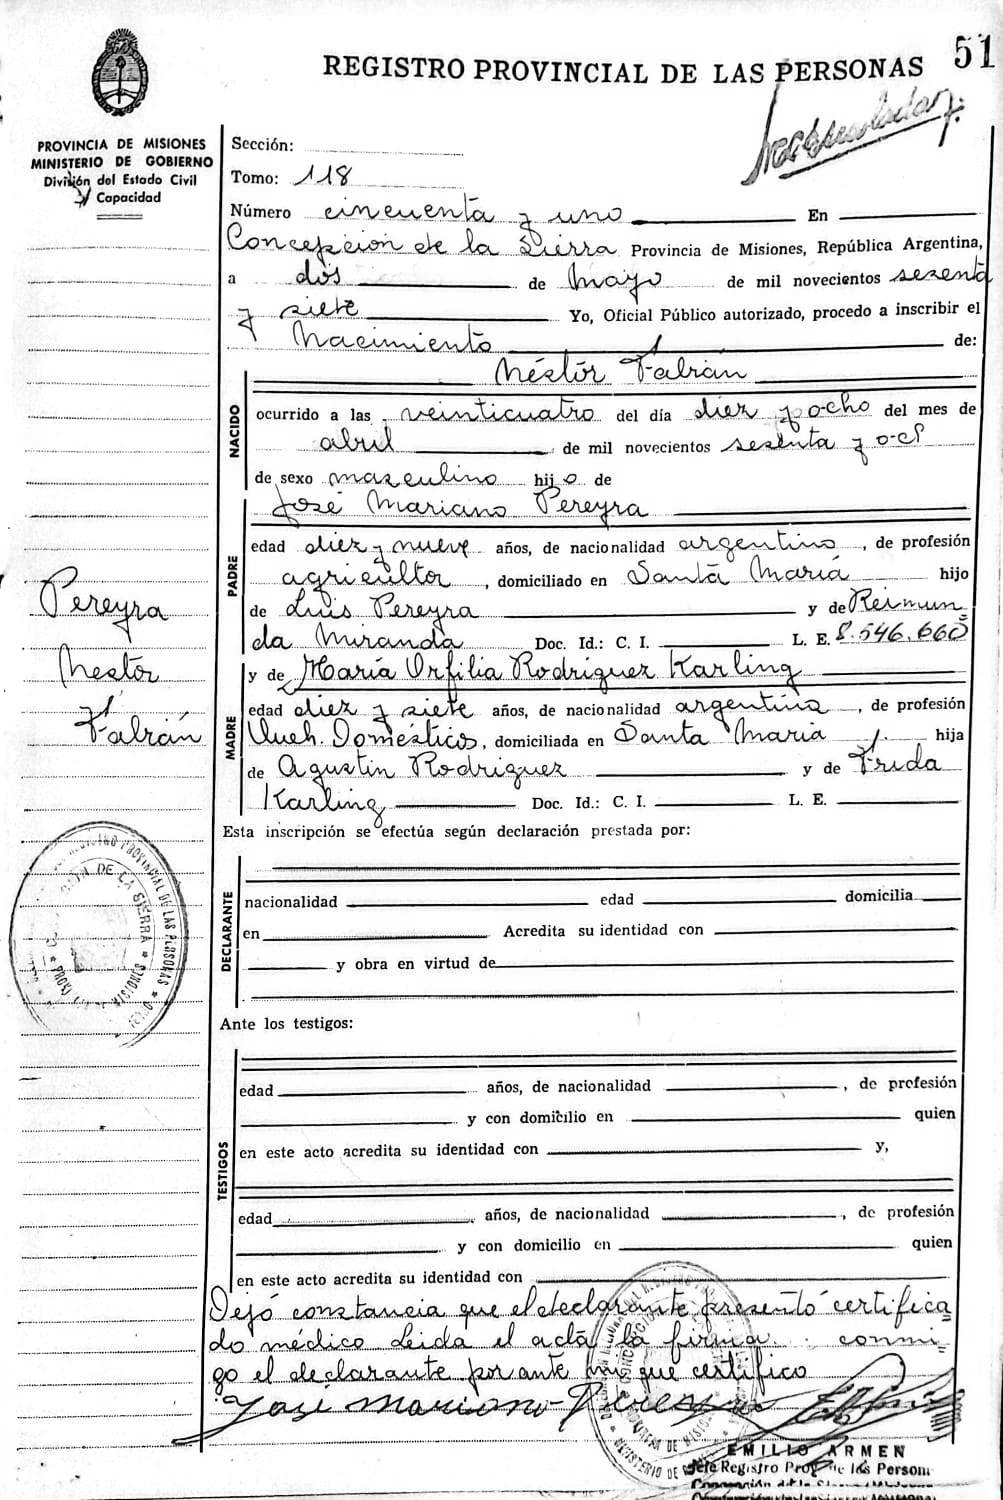 51
REGISTRO PROVINCIAL DE LAS PERSONAS
PROVINCIA DE MISIONES
MINISTERIO DE GOBIERNO
División del Estado Civil
y Capacidad
Sección:
Tomo: 118
Número cincuenta y uno En
Concepción de la Sierra Provincia de Misiones, República Argentina,
a dos de Mayo de mil novecientos sesenta
y siete Yo, Oficial Público autorizado, procedo a inscribir el
Nacimiento de:
Néstor Fabián
NACIDO
ocurrido a las veinticuatro del día diez y ocho del mes de
abril de mil novecientos sesenta y
de sexo masculino hijo de
José Mariano Pereyra
PADRE
edad diez y nueve años, de nacionalidad argentino, de profesión
agricultor, domiciliado en Santa María hijo
de Luis Pereyra y de Reimun
da Miranda Doc. Id.: C. I. L. E. 8.546.660
y de María Orfilia Rodriguez Karling
MADRE
edad diez y siete años, de nacionalidad argentina, de profesión
Queh. Domésticos, domiciliada en Santa Maria hija
de Agustin Rodriguez y de Frida
Karling Doc. Id.: C. I. L. E.
Pereyra
Nestor
Fabián
Esta inscripción se efectúa según declaración prestada por:
DECLARANTE
nacionalidad edad domicilia
en Acredita su identidad con
y obra en virtud de
Ante los testigos:
TESTIGOS
edad años, de nacionalidad , de profesión
y con domicilio en quien
en este acto acredita su identidad con y,
edad años, de nacionalidad , de profesión
y con domicilio en quien
en este acto acredita su identidad con
Dejó constancia que el declarante presentó certifica
do médico Leida el acta la firma conmi
go el declarante por ante mi que certifico
José Mariano Pereyra
EMILIO ARMEN
Jefe Registro Prov. de las Person